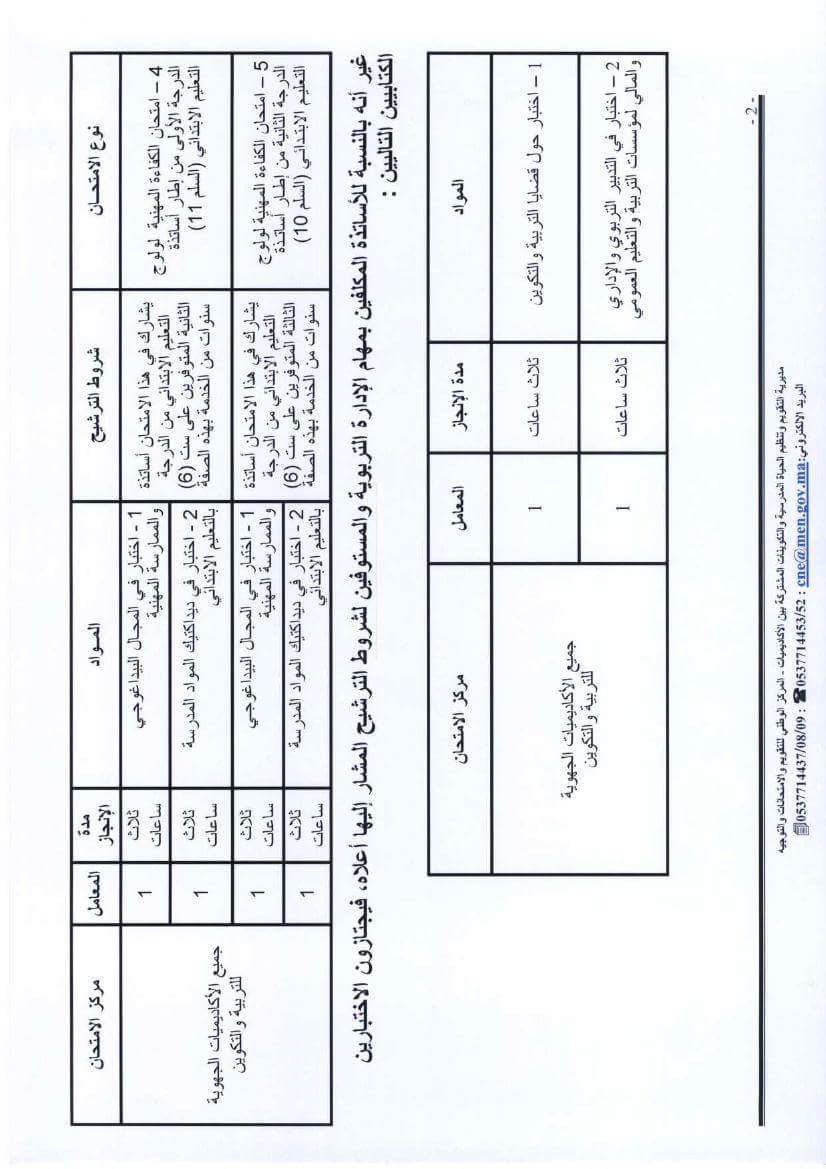 نوع الامتحان
شروط الترشيح
المـواد
مدة
الإنجاز
المعامل
مركز الامتحان
4 – امتحان الكفاءة المهنية لولوج
الدرجة الأولى من إطار أساتذة
التعليم الابتدائي (السلم 11)
يشارك في هذا الامتحان أساتذة
التعليم الابتدائي من الدرجة
الثانية المتوفرين على ست (6)
سنوات من الخدمة بهذه الصفة
1 - اختبار في المجال البيداغوجي
والممارسة المهنية
ثلاث
ساعات
1
2 - اختبار في ديداكتيك المواد المدرسة
بالتعليم الابتدائي
ثلاث
ساعات
1
5 – امتحان الكفاءة المهنية لولوج
الدرجة الثانية من إطار أساتذة
التعليم الابتدائي (السلم 10)
يشارك في هذا الامتحان أساتذة
التعليم الابتدائي من الدرجة
الثالثة المتوفرين على ست (6)
سنوات من الخدمة بهذه الصفة
1 - اختبار في المجال البيداغوجي
والممارسة المهنية
ثلاث
ساعات
1
2 - اختبار في ديداكتيك المواد المدرسة
بالتعليم الابتدائي
ثلاث
ساعات
1
جميع الأكاديميات الجهوية
للتربية والتكوين
غير أنه بالنسبة للأساتذة المكلفين بمهام الإدارة التربوية والمستوفين لشروط الترشيح المشار إليها أعلاه، فيجتازون الاختبارين
الكتابيين التاليين :
المواد
مدة الإنجاز
المعامل
مركز الامتحان
1 – اختبار حول قضايا التربية والتكوين
ثلاث ساعات
1
2 – اختبار في التدبير التربوي والإداري
والمالي لمؤسسات التربية والتعليم العمومي
ثلاث ساعات
1
جميع الأكاديميات الجهوية
للتربية والتكوين
- 2 -
مديرية التقويم وتنظيم الحياة المدرسية والتكوينات المشتركة بين الأكاديميات - المركز الوطني للتقويم والامتحانات والتوجيه
0537714437/08/09 : ☎0537714453/52 : cne@men.gov.ma:البريد الالكتروني